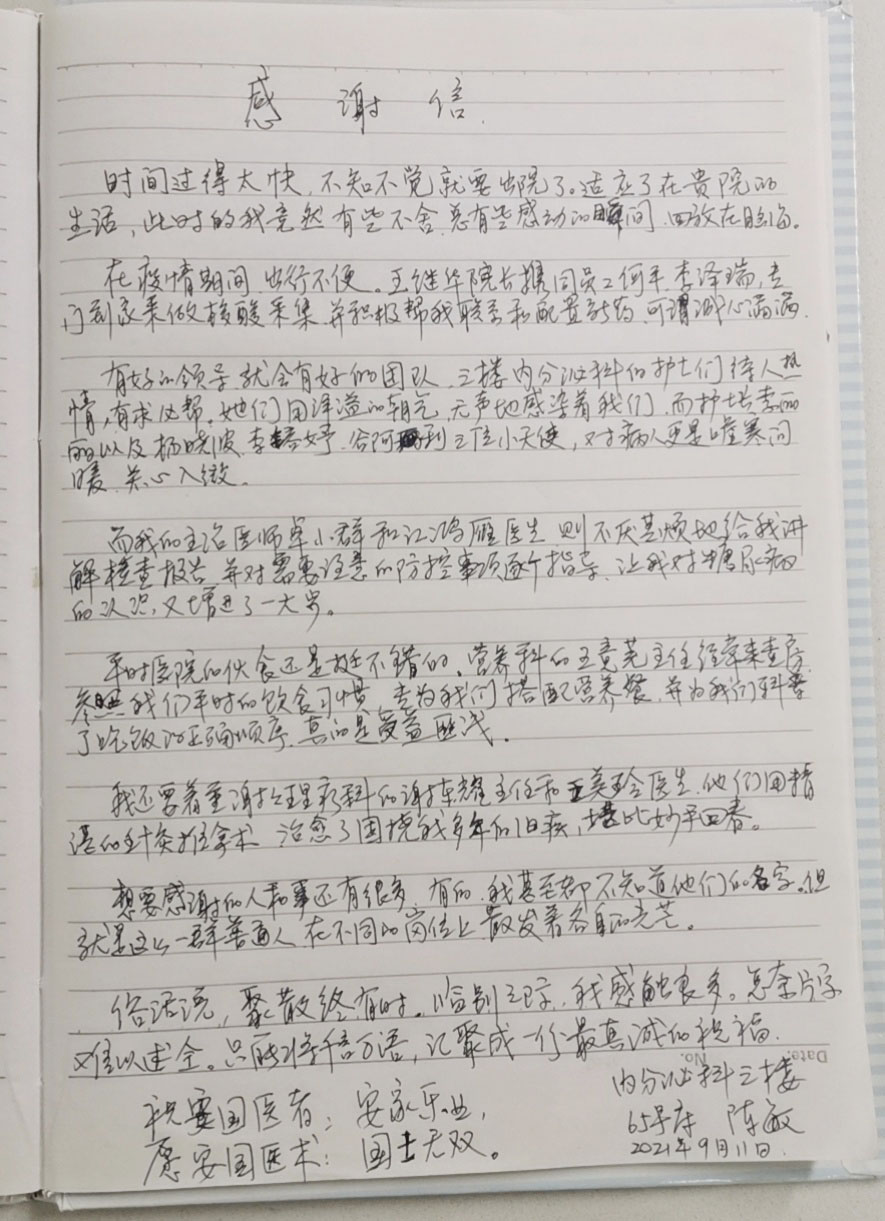 感谢信.
时间过得太快,不知不觉就要出院了。适应了在贵院的
生活,此时的我竟然有些不舍.总有些感动的瞬间,回放在脑海。
在疫情期间,出行不便。王继华院长携同员工何平、李泽瑞,专
门到家来做核酸采集,并积极帮我联系和配置新药,可谓诚心满满.
有好的领导,就会有好的团队,三楼内分泌科的护士们待人热
情,有求必帮。她们用洋溢的朝气,无声地感染着我们,而护士长李丽
丽以及杨晓波、李婷妤、三位小天使,对病人更是嘘寒问
暖、关心入微。
而我的主治医师卓小群和江鸿雁医生,则不厌其烦地给我讲
解检查报告,并对需要注意的防控事项逐个指导,让我对糖尿病
的认识,又增进了一大步。
平时医院的伙食还是挺不错的,营养科的王贵芫主任经常来查房,
参照我们平时的饮食习惯,专为我们搭配营养餐,并为我们科普
了吃饭的正确顺序,真的是受益匪浅。
我还要着重谢于理疗科的谢东耀主任和王美玲医生,他们用精
湛的针灸推拿术,治愈了困扰我多年的旧疾,堪比妙手回春。
想要感谢的人和事还有很多,有的,我甚至都不知道他们的名字。但
就是这么一群普通人,在不同的岗位上,散发着各自的光芒。
俗话说,聚散终有时。临别之际,我感触良多。怎奈片字
难以述全。只能将千言万语,汇聚成一份最真诚的祝福.
Date. No.
祝安国医者:安家乐业,
愿安国医术:国士无双。
内分泌科三楼
65号床 陈敏
2021年9月11日.